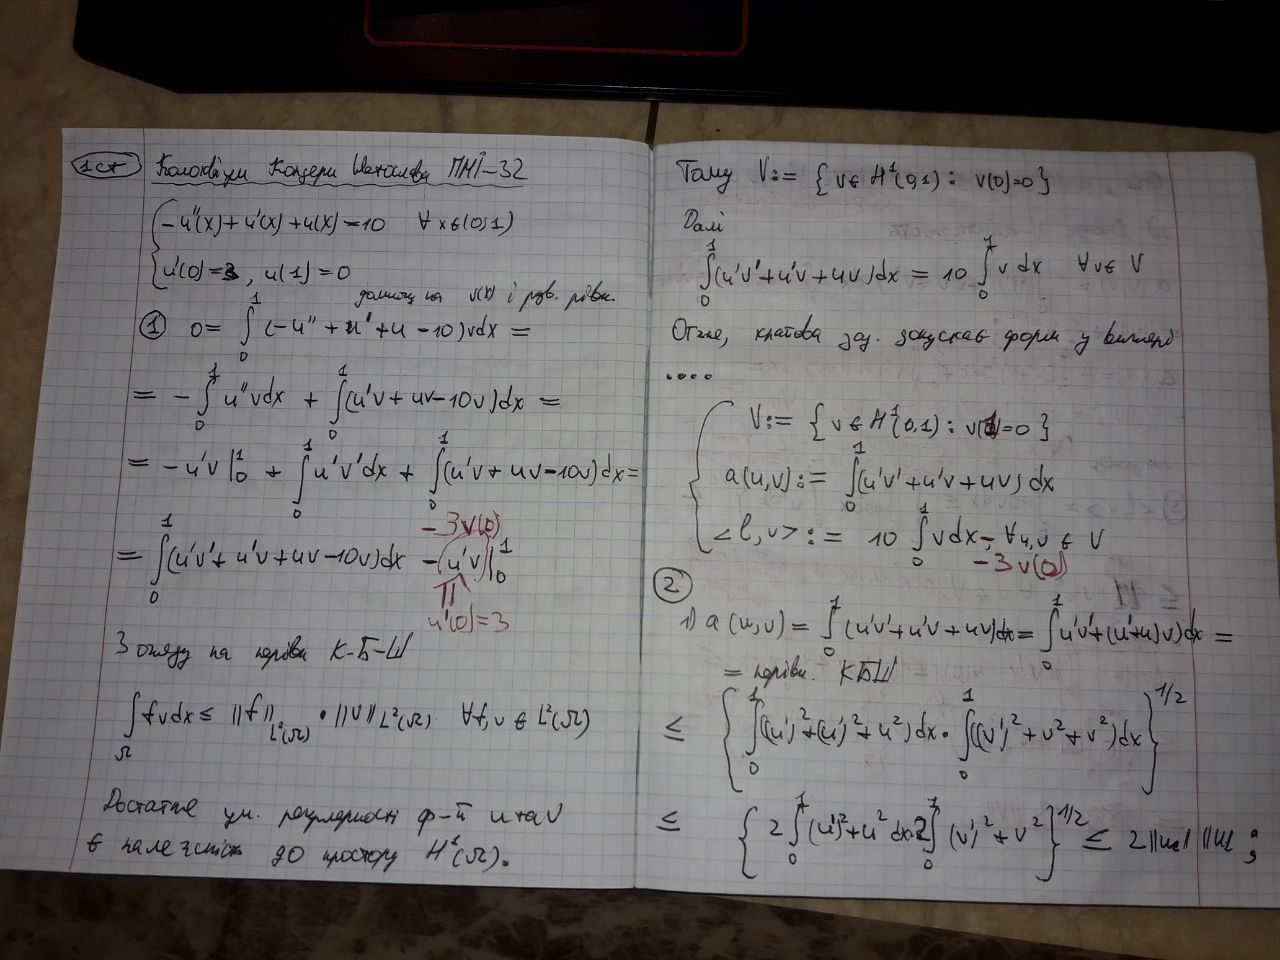 1 ст Колоквіум ПМІ-32
{ -u''(x) + u'(x) + u(x) = 10 ∀ x ∈ (0,1)
u'(0) = 3, u(1) = 0
на v(x) і рівн.
① 0 = ∫₀¹ (-u'' + u' + u - 10) v dx =
= - ∫₀¹ u'' v dx + ∫₀¹ (u'v + uv - 10v) dx =
= - u'v |₀¹ + ∫₀¹ u'v' dx + ∫₀¹ (u'v + uv - 10v) dx =
- 3v(0)
= ∫₀¹ (u'v' + u'v + uv - 10v) dx - (u'v) |₀¹
u'(0) = 3
З огляду на нерівн К-Б-Ш
∫_Ω f v dx ≤ ||f||_L²(Ω) · ||v||_L²(Ω) ∀ f, v ∈ L²(Ω)
Достатнє ум. регулярності ф-й u та v
є належність до простору H¹(Ω).
Тому V := { v ∈ H¹(0,1) : v(0) = 0 }
Далі
∫₀¹ (u'v' + u'v + uv) dx = 10 ∫₀¹ v dx ∀ v ∈ V
Отже, зад. допускає форм у вигляді
....
{ V := { v ∈ H¹(0,1) : v(1) = 0 }
a(u,v) := ∫₀¹ (u'v' + u'v + uv) dx
<l, v> := 10 ∫₀¹ v dx - , ∀ u, v ∈ V
- 3v(0)
②
1) a(u,v) = ∫₀¹ (u'v' + u'v + uv) dx = ∫₀¹ u'v' + (u' + u) v) dx =
= нерівн. КБШ
≤ { ∫₀¹ ((u')² + (u')² + u²) dx · ∫₀¹ ((v')² + v² + v²) dx }^1/2
≤ { 2 ∫₀¹ (u')² + u² dx · 2 ∫₀¹ (v')² + v² }^1/2 ≤ 2 ||u|| ||v|| ;